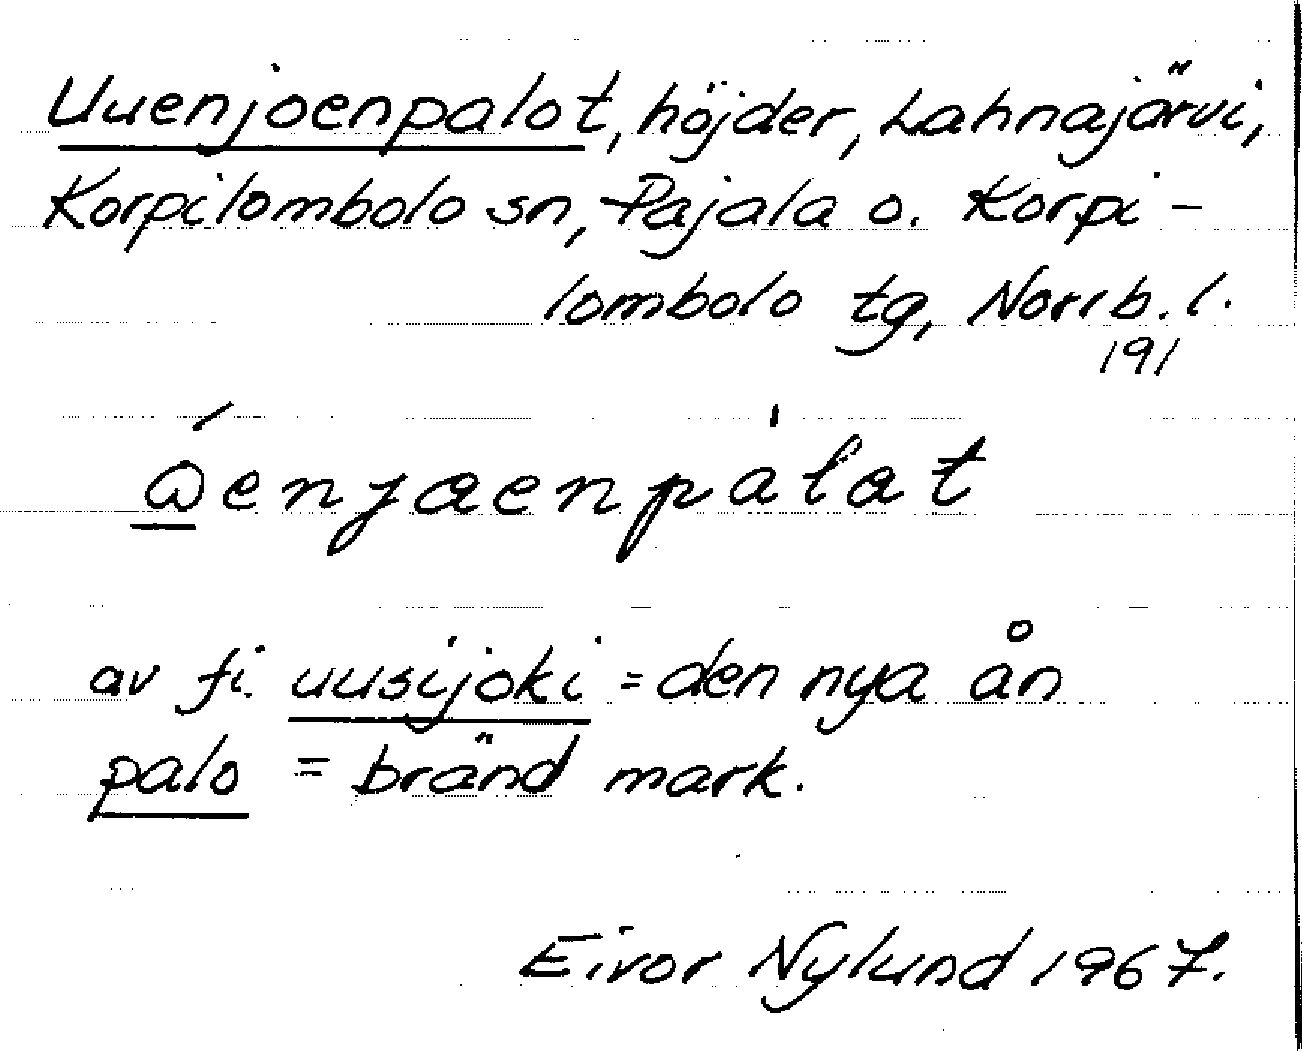 Uuenjoenpalot, höjder, Lahnajärvi,
Korpilombolo sn, Pajala o. Korpi-
lombolo tg, Norrb. l.
191
av fi. uusijoki = den nya ån
palo = bränd mark.
Eivor Nylund 1967.